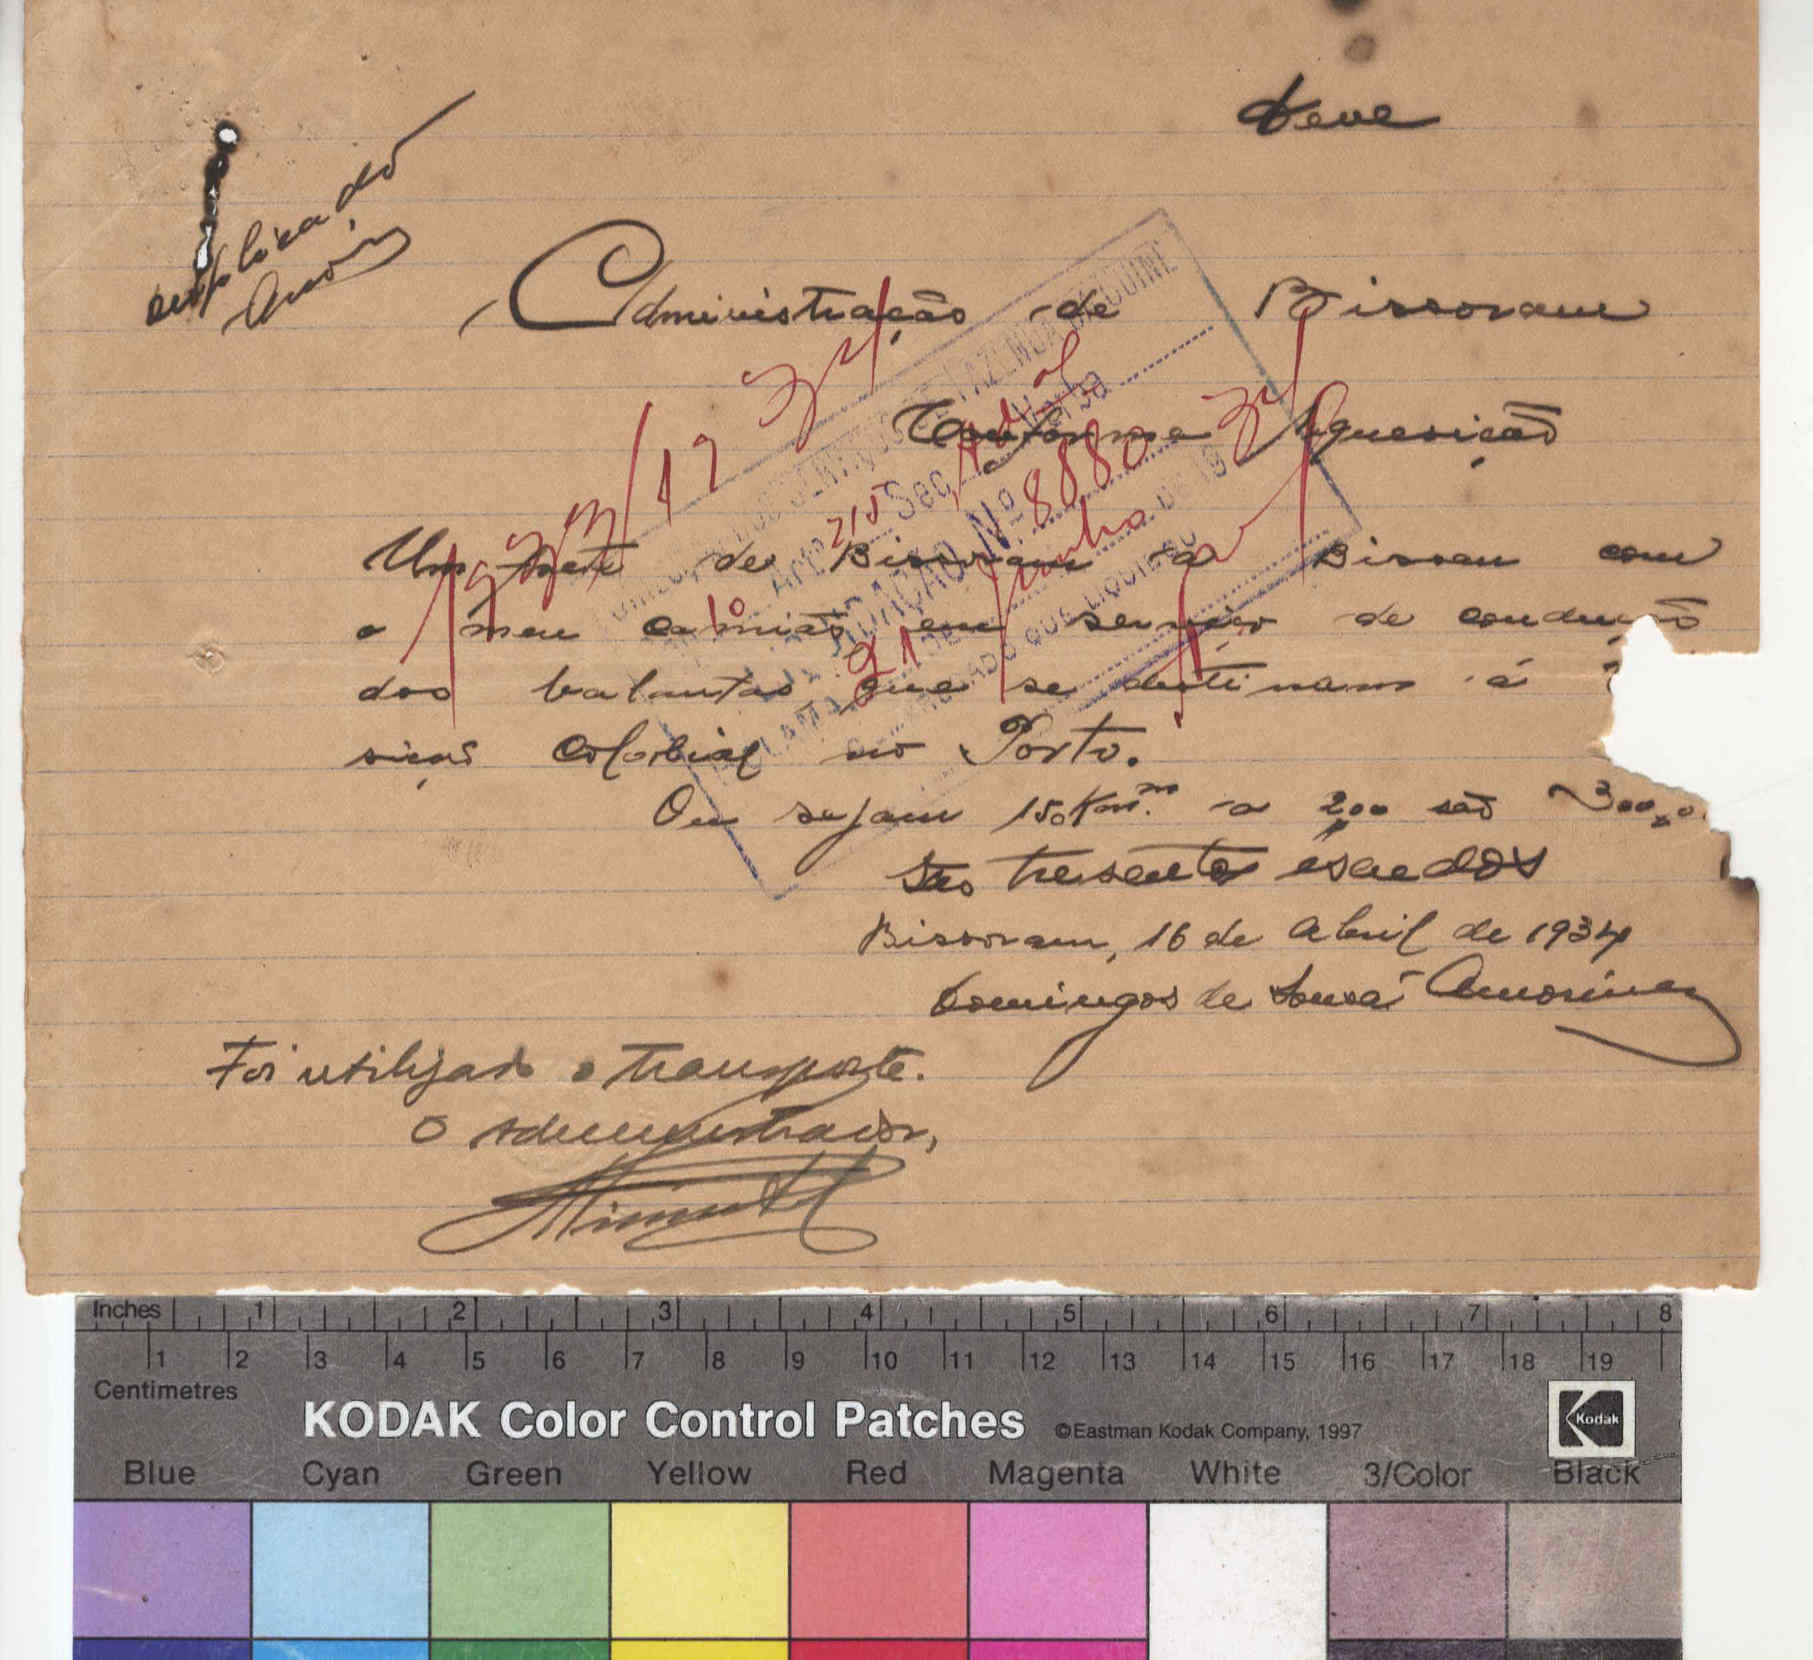 Deve
duplicado
Administração de Bissoram
Conforme Requesição
Um frete de Bissoram a Bissau com
o meu camião em serviço de condução
dos balantas que se destinam á
sição Colonial no Porto.
Ou sejam 150 Km. a 2,00 são 300,0
São tresentos escudos
Bissoram, 16 de Abril de 1934
Domingos de Sousa Amorim
Foi utilizado o transporte.
O administrador,
SERVIÇOS DE FAZENDA DA GUINÉ
Art. 215 Sec. Verba
Nº 8880
21 DE Junho DE 1934
1933/1934
Inches 1 2 3 4 5 6 7 8
1 2 3 4 5 6 7 8 9 10 11 12 13 14 15 16 17 18 19
Centimetres
KODAK Color Control Patches ©Eastman Kodak Company, 1997 Kodak
Blue Cyan Green Yellow Red Magenta White 3/Color Black